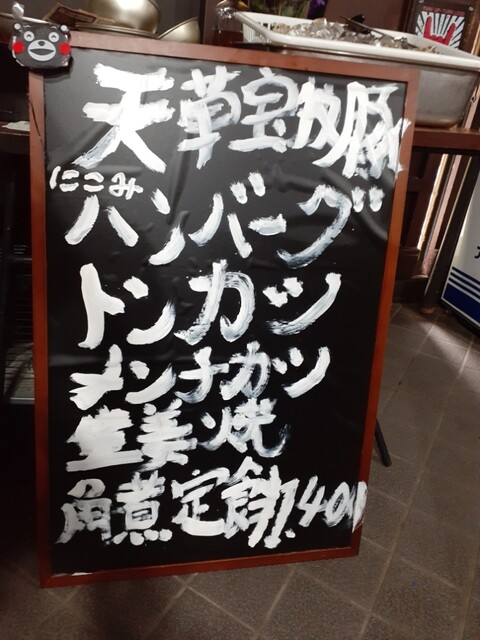 天草宝牧豚
にこみ
ハンバーグ
トンカツ
メンチカツ
生姜焼
角煮定食1.400